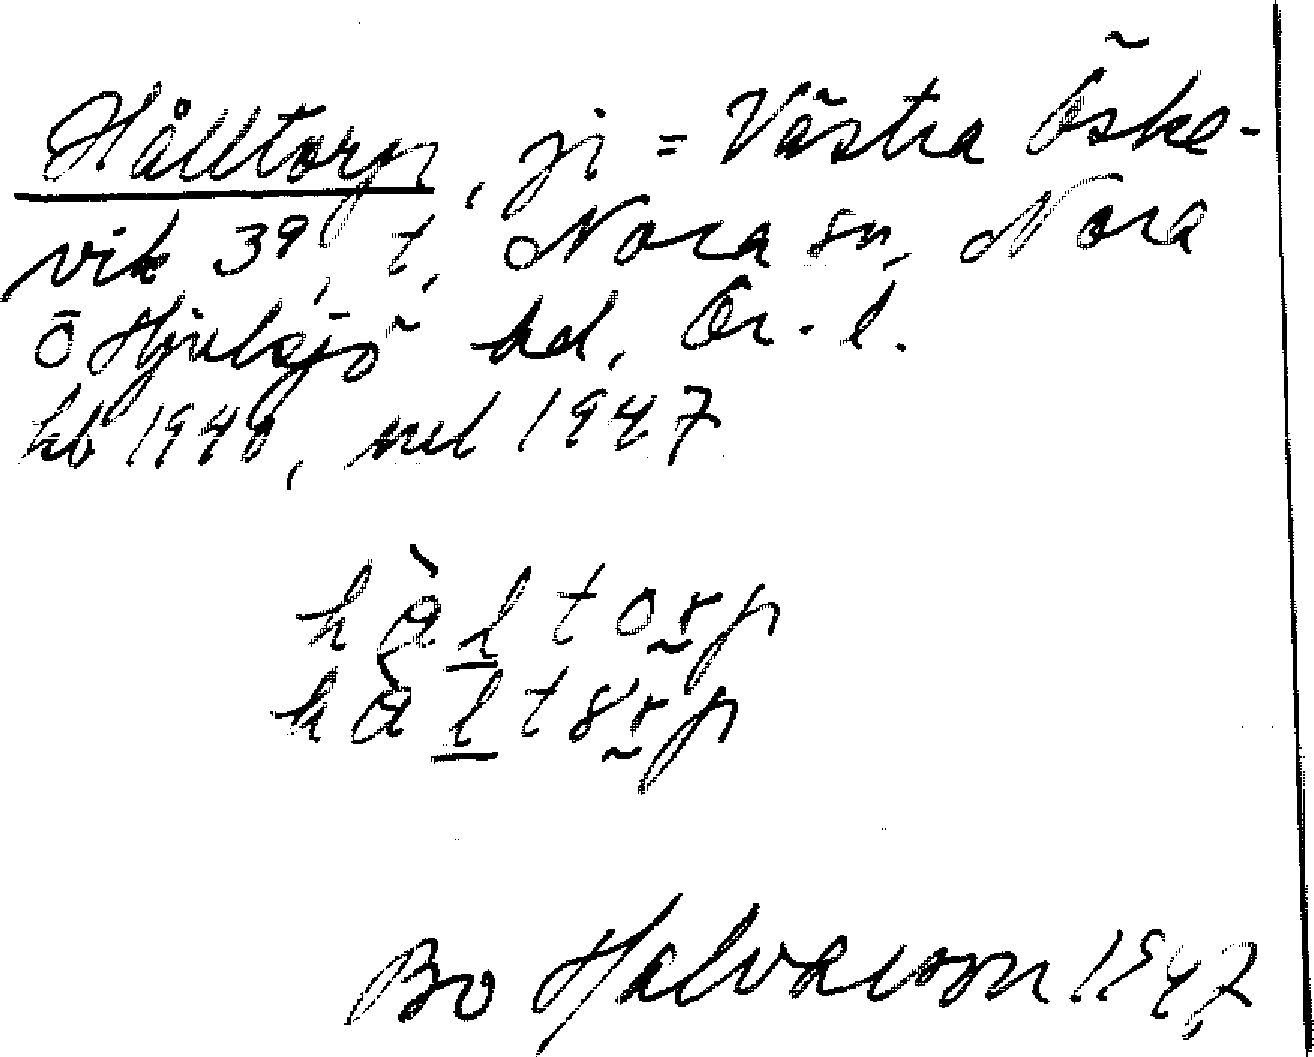 Hålltorp, pi = Västra Öske-
vik 39, t, Nora sn, Nora
o Hjulsjö hd, Ör. l.
kb 1940, ml 1947
hàltorp
hàltørp
Bo Halvarson 1947